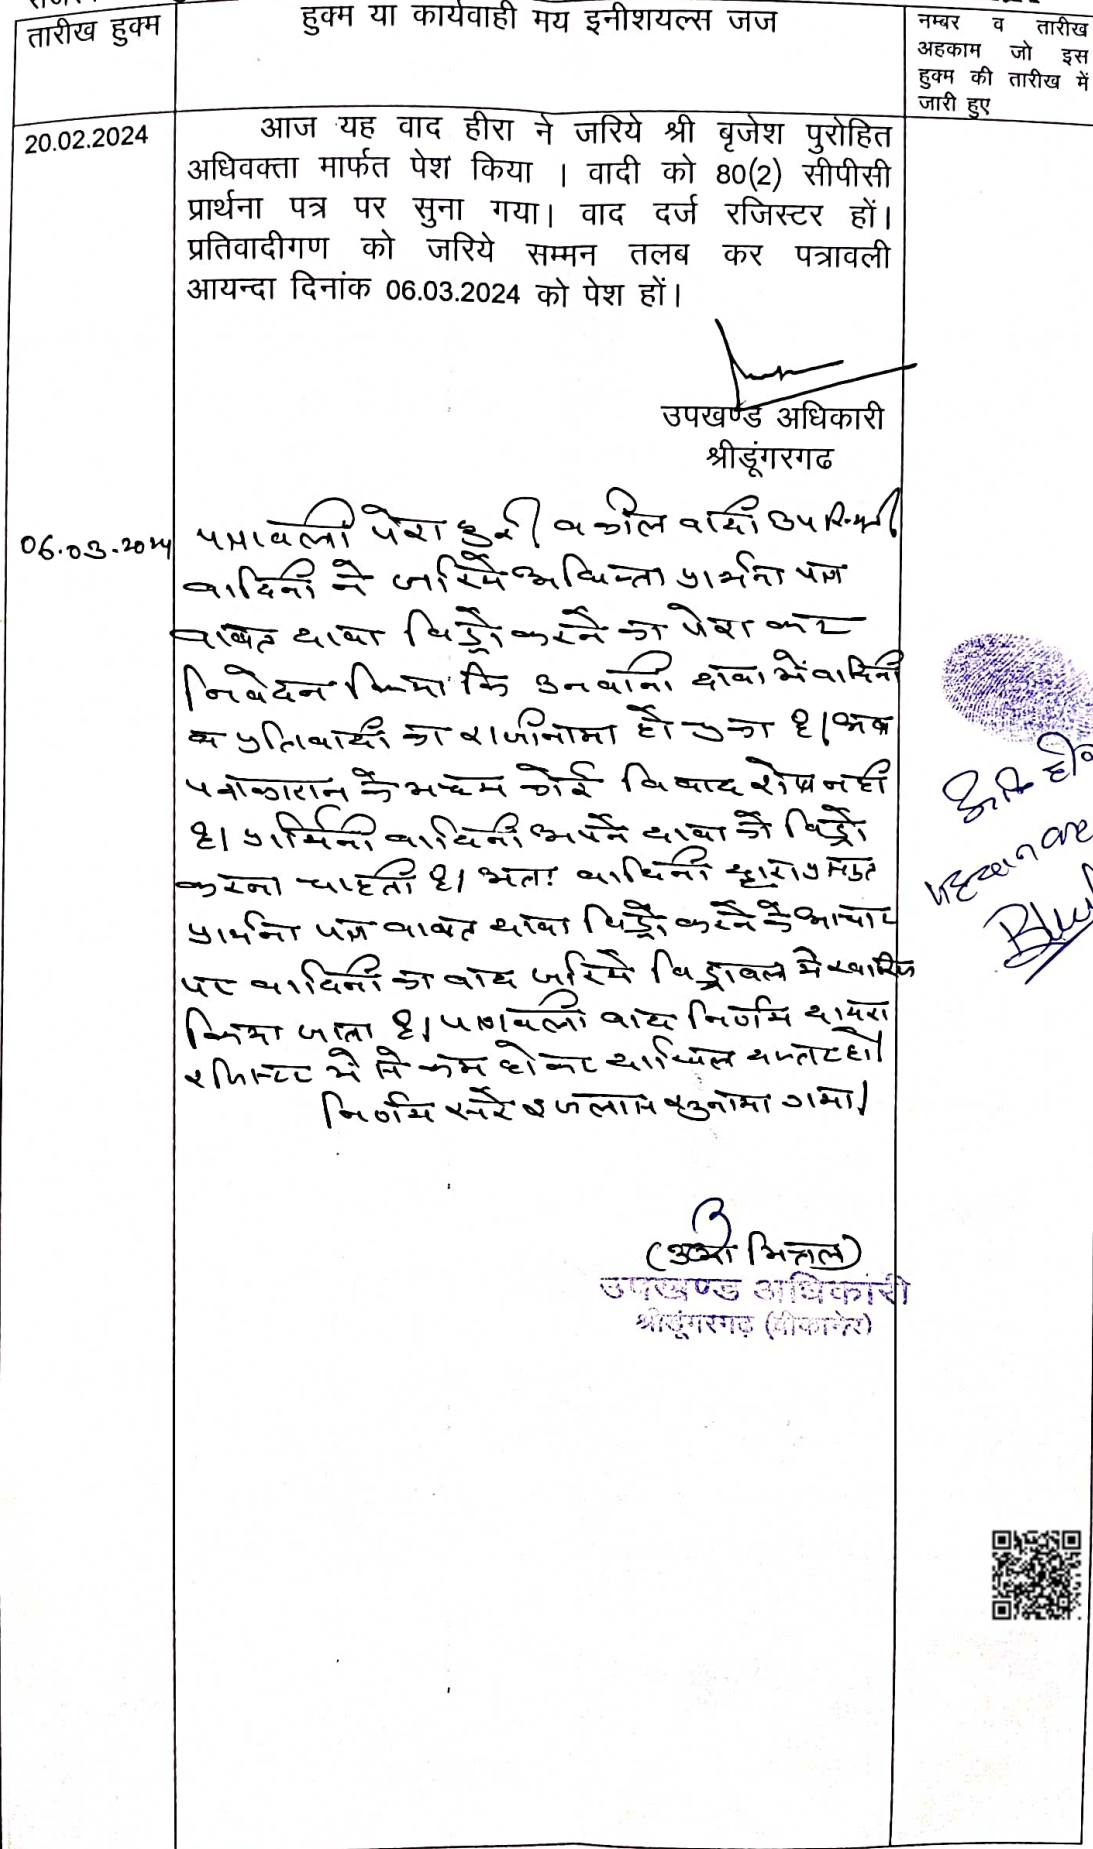 तारीख हुक्म
हुक्म या कार्यवाही मय इनीशयल्स जज
नम्बर व तारीख
अहकाम जो इस
हुक्म की तारीख में
जारी हुए
20.02.2024
आज यह वाद हीरा ने जरिये श्री बृजेश पुरोहित
अधिवक्ता मार्फत पेश किया । वादी को 80(2) सीपीसी
प्रार्थना पत्र पर सुना गया। वाद दर्ज रजिस्टर हों।
प्रतिवादीगण को जरिये सम्मन तलब कर पत्रावली
आयन्दा दिनांक 06.03.2024 को पेश हों।
उपखण्ड अधिकारी
श्रीडूंगरगढ
06.03.2024
पत्रावली पेश हुई। वकील वादी उपस्थित।
वादिनी ने जरिये अधिवक्ता प्रार्थना पत्र
बाबत दावा विड्रो करने का पेश कर
निवेदन किया कि उनवानी दावा में वादिनी
व प्रतिवादी का राजीनामा हो चुका है। अब
पक्षकारान के मध्य कोई विवाद शेष नहीं
है। प्रार्थिनी वादिनी अपने दावा को विड्रो
करना चाहती है। अतः वादिनी द्वारा प्रस्तुत
प्रार्थना पत्र बाबत दावा विड्रो करने के आधार
पर वादिनी का वाद जरिये विड्रावल में खारिज
किया जाता है। पत्रावली वाद निर्णय दायरा
रजिस्टर में से कम होकर दाखिल दफ्तर हो।
निर्णय सरे इजलास सुनाया गया।
(उमा मित्तल)
उपखण्ड अधिकारी
श्रीडूंगरगढ़ (बीकानेर)